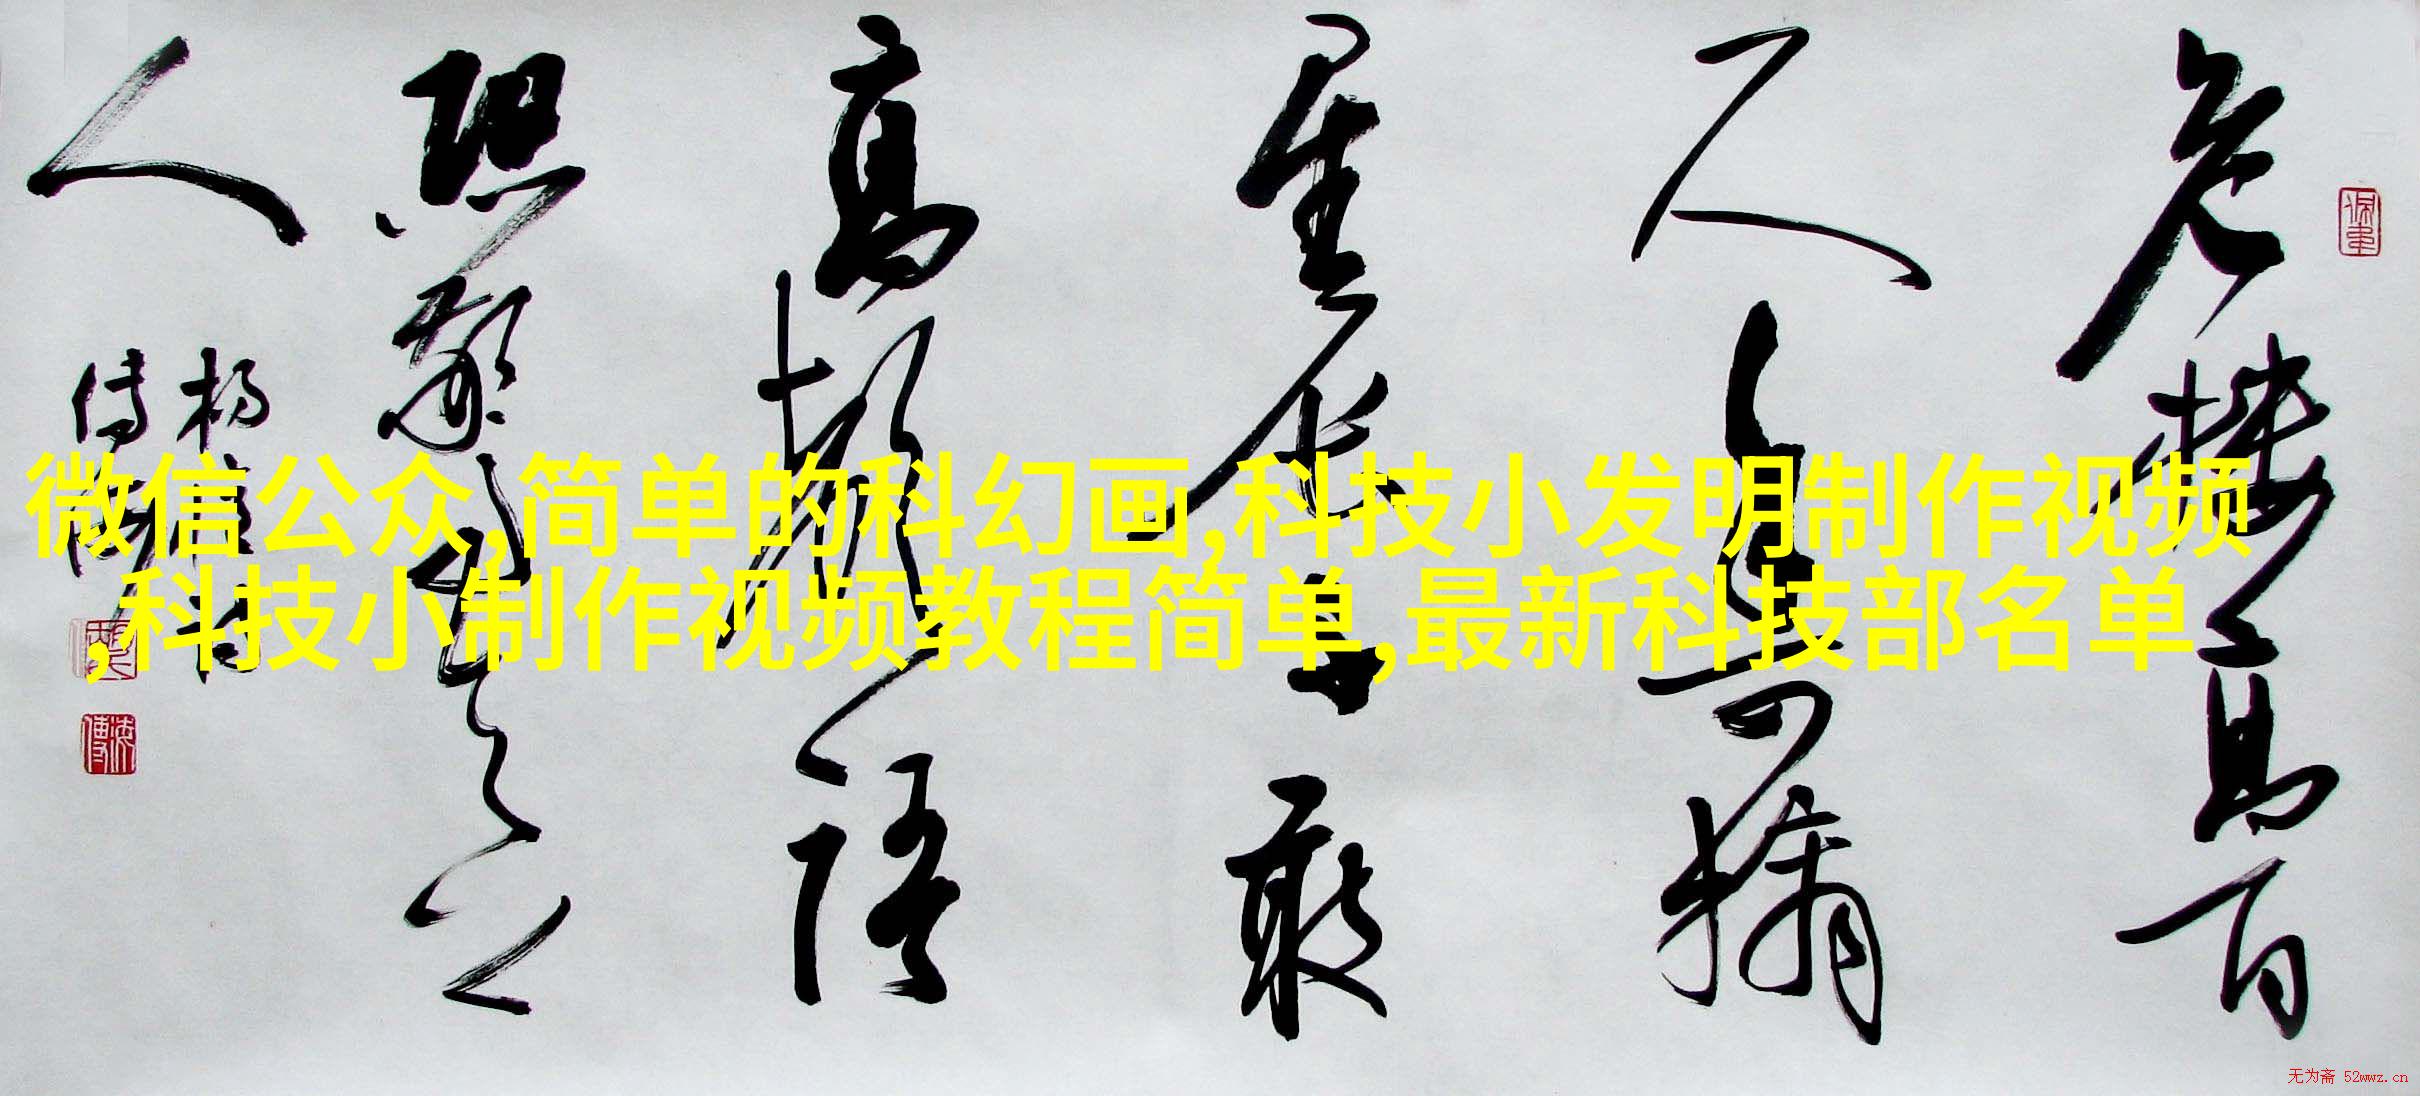 危樓高百
尺手可摘
星辰不敢
高聲語
恐驚天上
人
微信公众,简单的科幻画,科技小发明制作视频
,科技小制作视频教程简单,最新科技部名单
无为斋 52wwz.cn